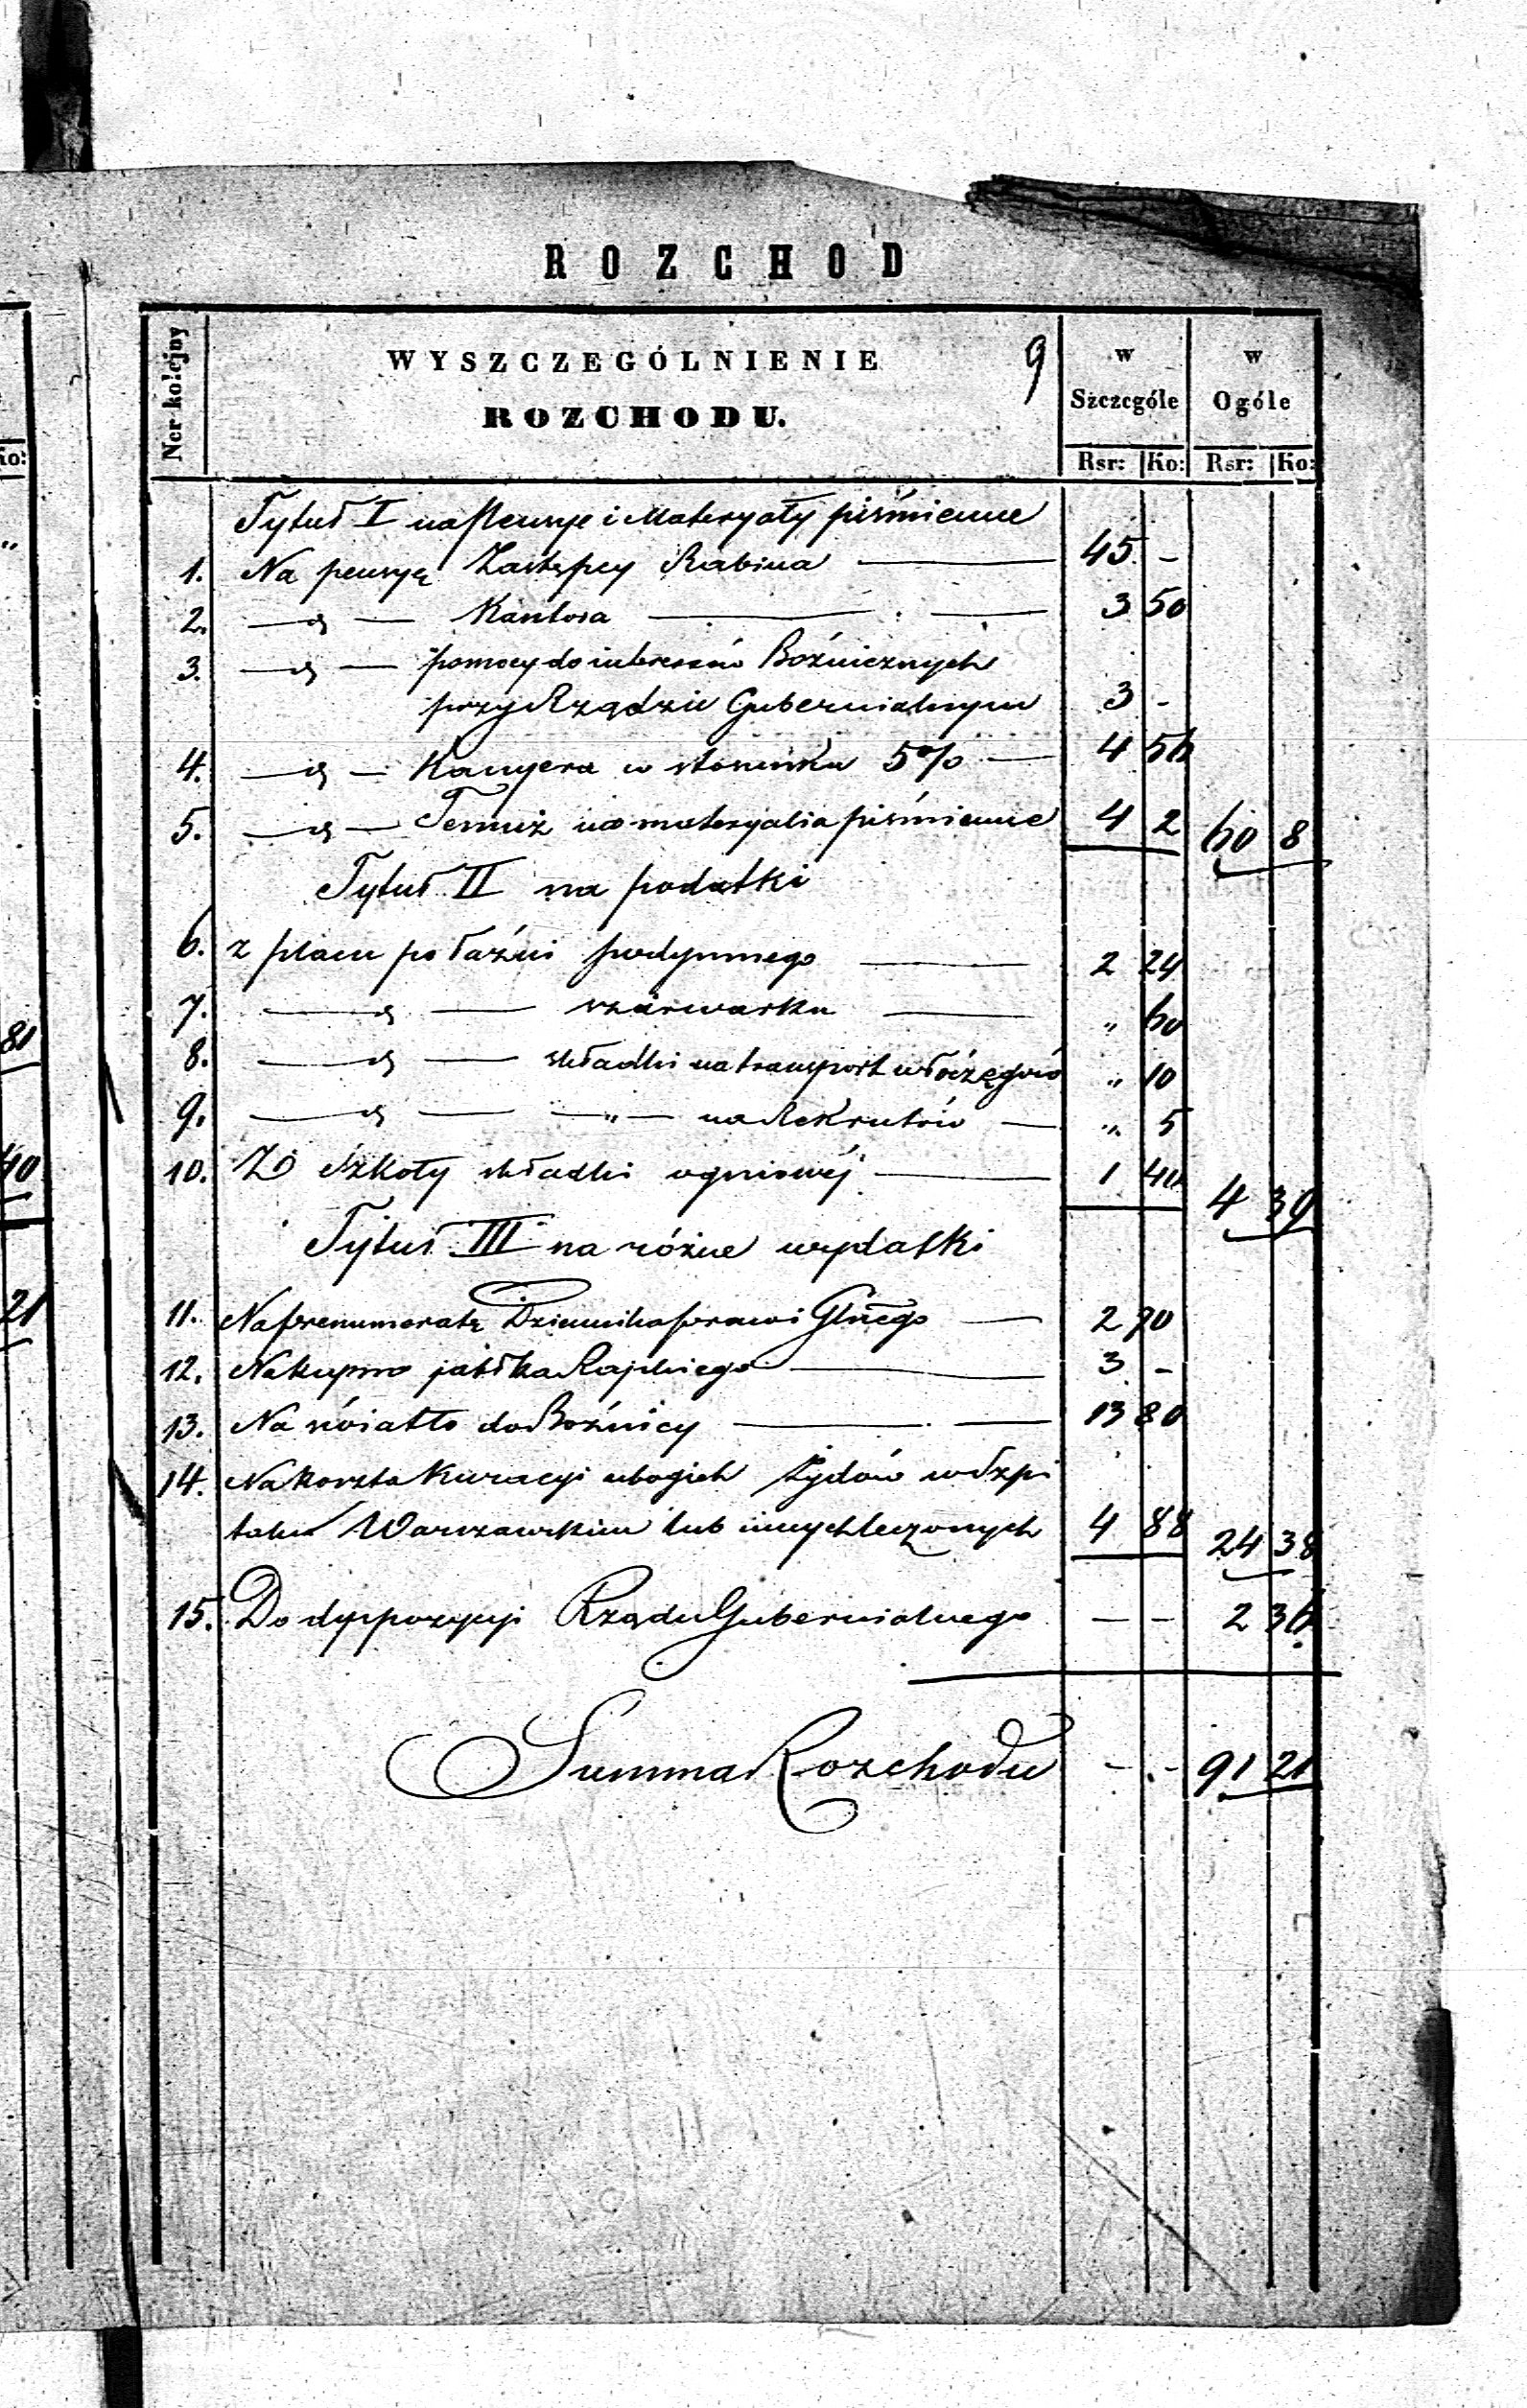 Ko:
"
81
40
21
ROZCHOD
Ner kolejny
WYSZCZEGÓLNIENIE
ROZCHODU.
9
w Szczególe
w Ogóle
Rsr: Ko: Rsr: Ko:
Tytuł I na Pensye i Materyały piśmienne
1. Na pensyę Zastępcy Rabina — 45 -
2. — d — Kantora — 3 50
3. — d — pomocy do interesów Bóźnicznych
przy Rządzie Gubernialnym 3 -
4. — d — Kasyera w stosunku 5% — 4 56
5. — d — Temuż na materyalia piśmienne 4 2 60 8
Tytuł II na podatki
6. z placu po łaźni podymnego — 2 24
7. — d — szarwarku — " 60
8. — d — składki na transport włóczęgów " 10
9. — d — — " — na Rekrutów — " 5
10. Ze Szkoły składki ogniowéj — 1 40 4 39
Tytuł III na różne wydatki
11. Na prenumeratę Dziennika praw i Glnego — 2 70
12. Na kupno jabłka Rajskiego — 3 -
13. Na światło do Bóźnicy — 13 80
14. Na koszta Kuracyi ubogich Żydów w Szpi
talu Warszawskim lub innych leczonych 4 88 24 38
15. Do dyspozycyi Rządu Gubernialnego — — 2 36
Summa Rozchodu - - 91 21